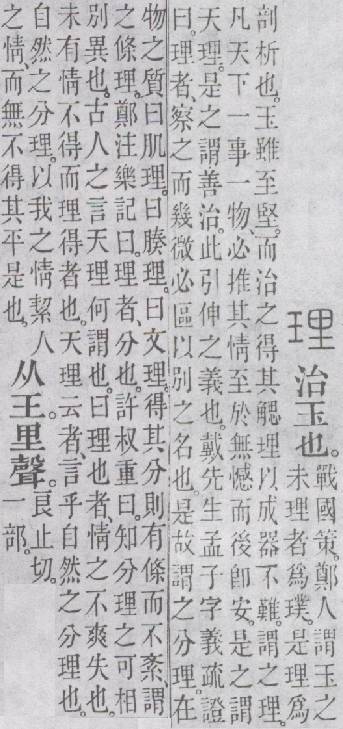 理 治玉也。
戰國策。鄭人謂玉之
未理者爲璞。是理爲
剖析也。玉雖至堅。而治之得其䚡理以成器不難。謂之理。
凡天下一事一物。必推其情至於無憾而後卽安。是之謂
天理。是之謂善治。此引伸之義也。戴先生孟子字義疏證
曰。理者、察之而幾微必區以別之名也。是故謂之分理。在
物之質曰肌理。曰腠理。曰文理。得其分則有條而不紊。謂
之條理。鄭注樂記曰。理者、分也。許叔重曰。知分理之可相
別異也。古人之言天理何謂也。曰理也者、情之不爽失也。
未有情不得而理得者也。天理云者、言乎自然之分理也。
自然之分理。以我之情絜人
之情。而無不得其平是也。
从王。里聲。
良止切。
一部。